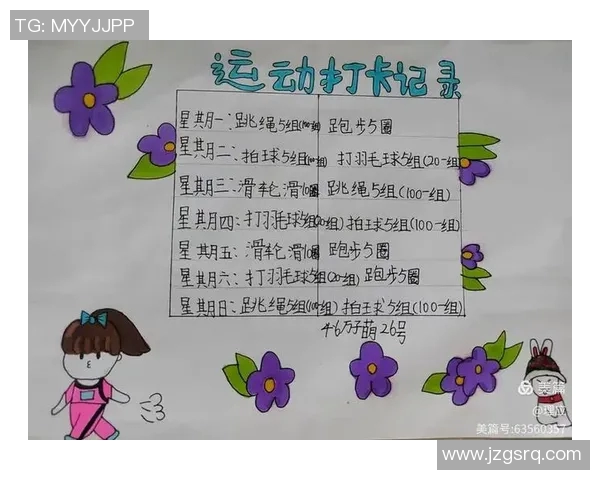 TG: MYYJJPP
运动打卡记录
星期一:跳绳5组(100一组) 跑步5圈
星期二:拍球5组(100一组) 打羽毛球5组(20一组)
星期三:滑轮滑10圈 跳绳5组(100一组)
星期四:打羽毛球5组(20一组) 拍球5组(100一组)
星期五:滑轮滑10圈 跑步5圈
星期六:打羽毛球5组(20一组) 跑步5圈
星期日:跳绳5组(100一组) 拍球5组(100一组)
26号
美篇
美篇号:63560357
www.jzgsrq.com